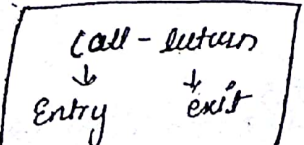 Call - return
↓ ↓
Entry exit